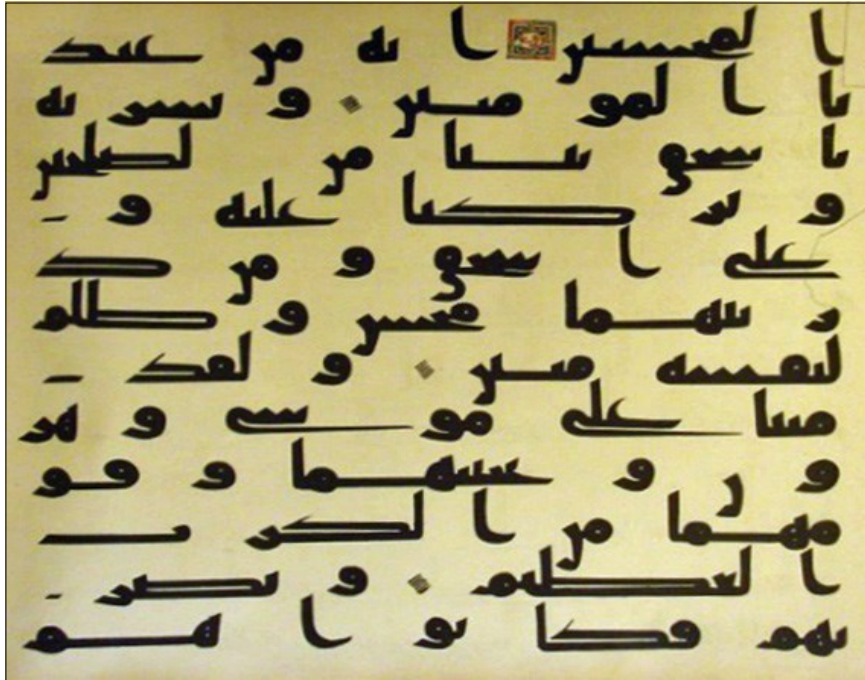 المحسنين انه من عبد
نا المومنين و بشرنه
باسحق نبيا من الصلحين
و بركنا عليه و
على اسحق و من ذ
ريتهما محسن و ظالم
لنفسه مبين و لقد
مننا على موسى و هر
ون و نجينهما و قو
مهما من الكرب
العظيم و نصر
نهم فكانوا هم